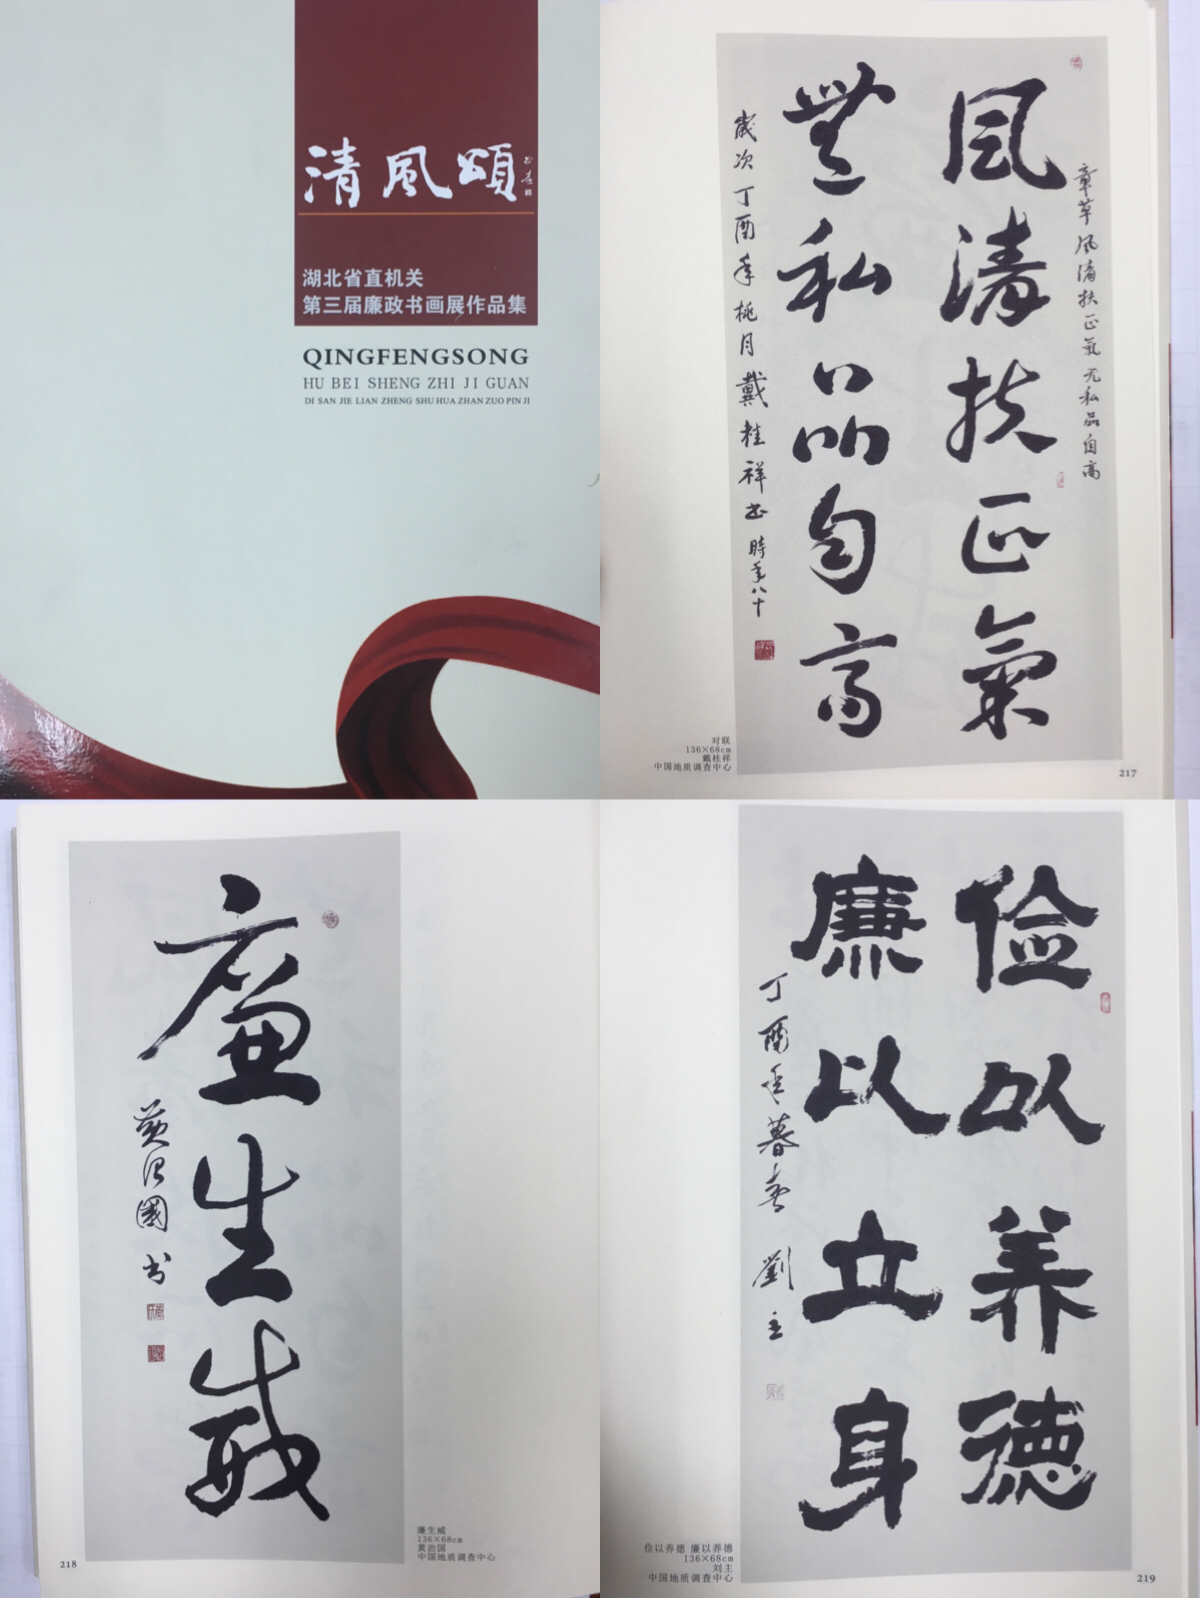 清風頌
湖北省直机关
第三届廉政书画展作品集
QINGFENGSONG
HU BEI SHENG ZHI JI GUAN
DI SAN JIE LIAN ZHENG SHU HUA ZHAN ZUO PIN JI
章草風清扶正氣无私品自高
風清扶正氣
無私品自高
歲次丁酉年桃月戴桂祥书時年八十
对联
136×68cm
戴桂祥
中国地质调查中心
217
廉生威
黄治國书
廉生威
136×68cm
黄治国
中国地质调查中心
218
俭以养德
廉以立身
丁酉年暮春 劉主
俭以养德 廉以养德
136×68cm
刘主
中国地质调查中心
219